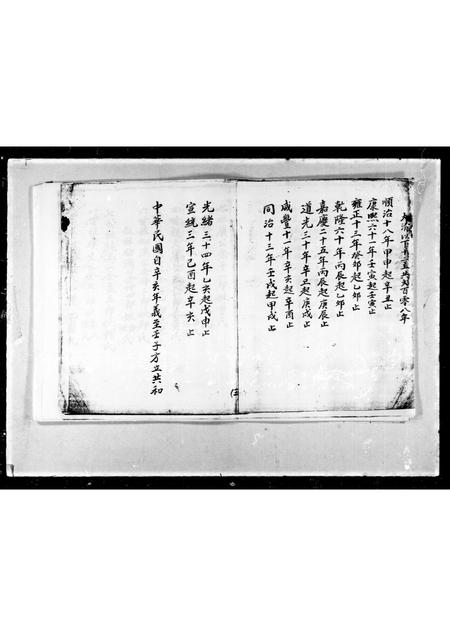 順治十八年甲申起辛丑止
康熙六十一年壬寅起壬寅止
雍正十三年癸卯起乙卯止
乾隆六十年丙辰起乙卯止
嘉慶二十五年丙辰起庚辰止
道光三十年辛巳起庚戌止
咸豐十一年辛亥起辛酉止
同治十三年壬戌起甲戌止
光緒三十四年乙亥起戊申止
宣統三年己酉起辛亥止
中華民國自辛亥年義至壬子方立共和